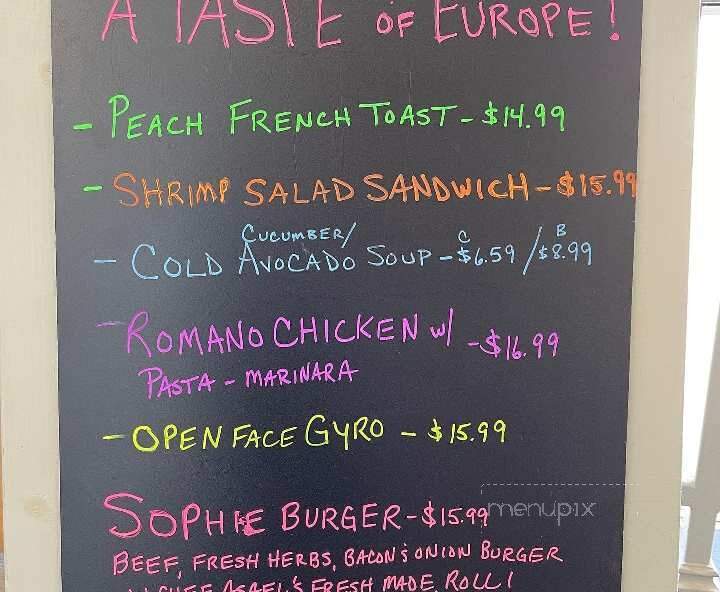 A TASTE OF EUROPE!
- PEACH FRENCH TOAST - $14.99
- SHRIMP SALAD SANDWICH - $15.99
CUCUMBER/ C B
- COLD AVOCADO SOUP - $6.59 / $8.99
- ROMANO CHICKEN w/ - $16.99
PASTA - MARINARA
- OPEN FACE GYRO - $15.99
SOPHIE BURGER - $15.99
menupix
BEEF, FRESH HERBS, BACON & ONION BURGER
FRESH MADE ROLL!